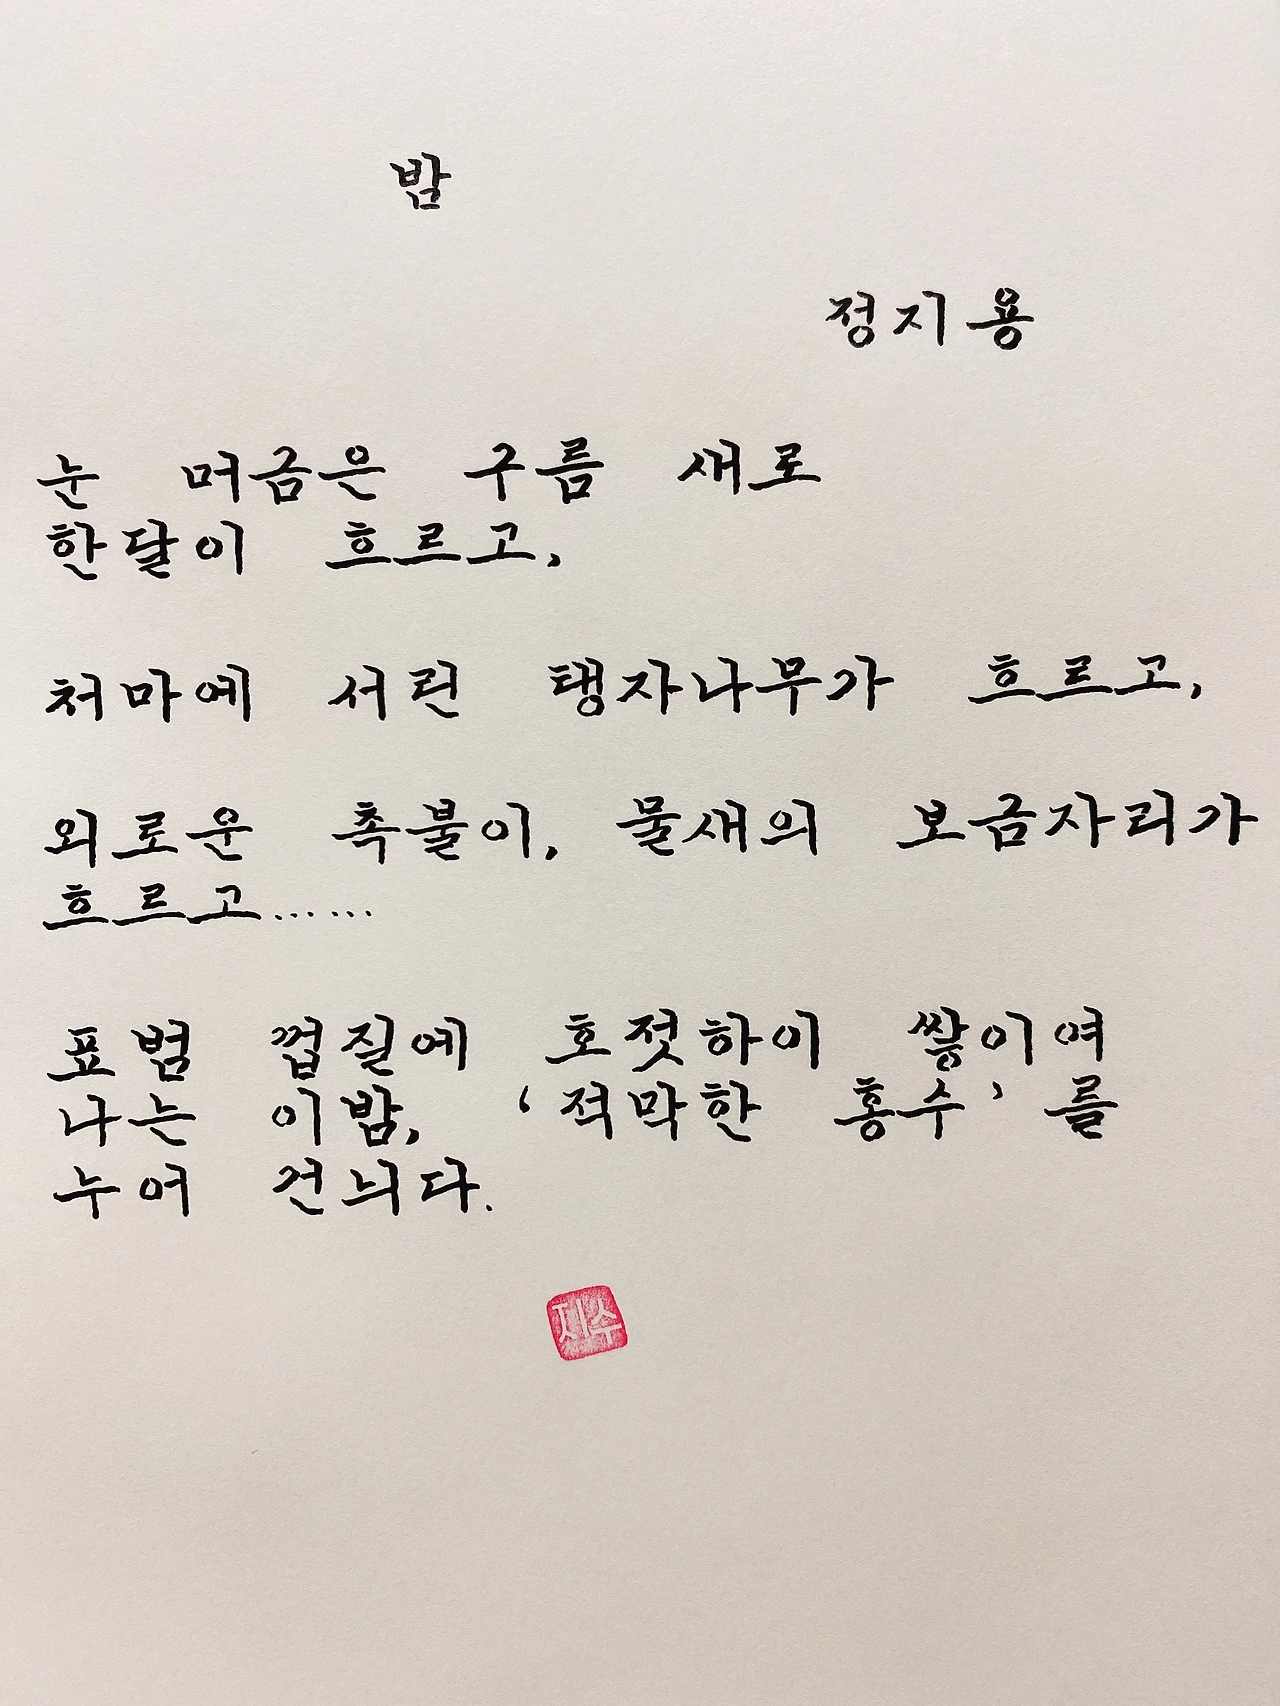 밤
정지용
눈 머금은 구름 새로
한달이 흐르고,
처마에 서린 탱자나무가 흐르고,
외로운 촉불이, 물새의 보금자리가
흐르고……
표범 껍질에 호젓하이 쌓이여
나는 이밤, ‘적막한 홍수’를
누어 건늬다.
지수